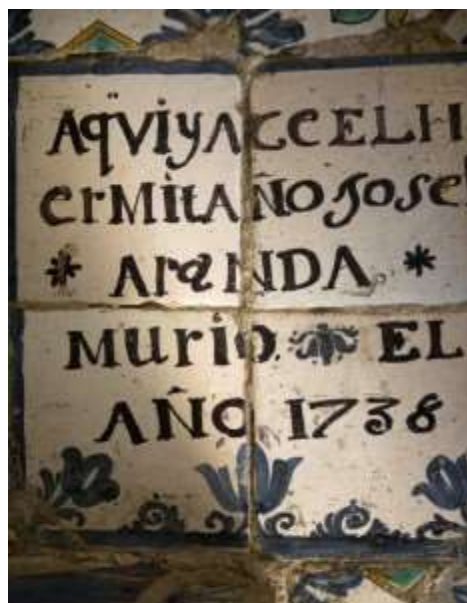 AqviyACe EL H
erMitAÑO Jose
* ArANDA *
Murio EL
AÑO 1738